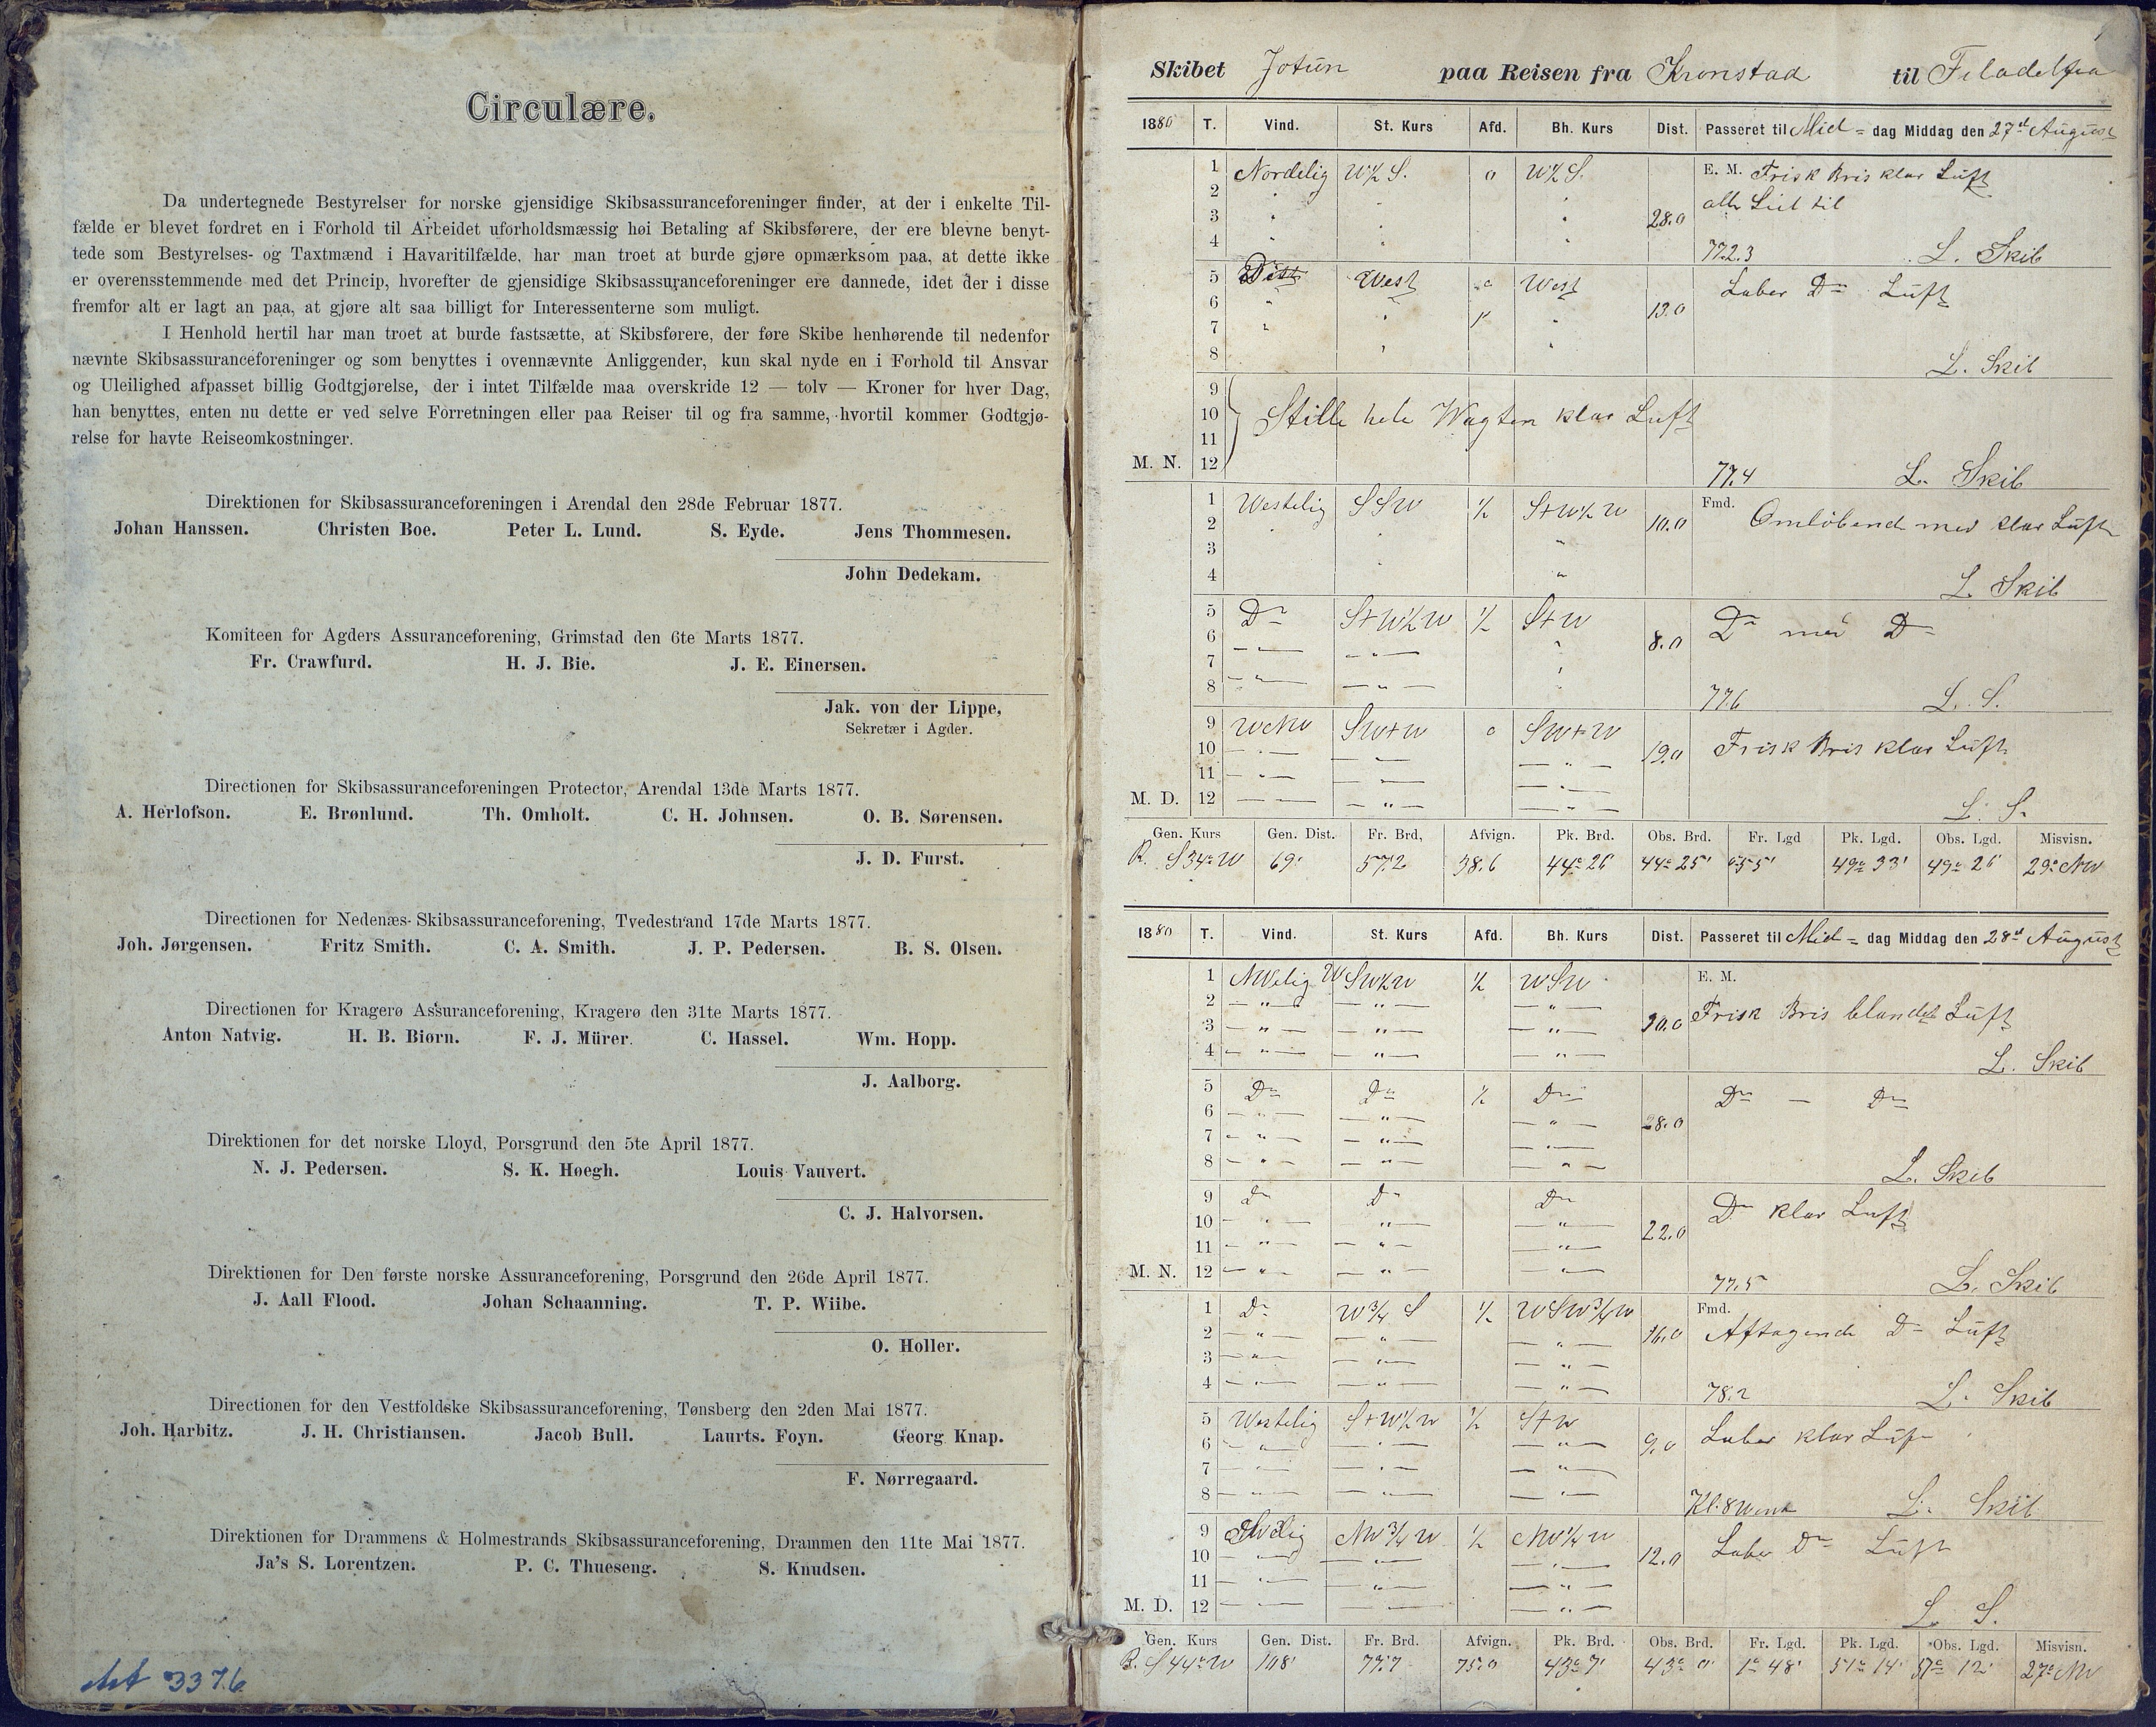 Circulære.
Da undertegnede Bestyrelser for norske gjensidige Skibsassuranceforeninger finder, at der i enkelte Til-
fælde er blevet fordret en i Forhold til Arbeidet uforholdsmæssig høi Betaling af Skibsførere, der ere blevne benyt-
tede som Bestyrelses- og Taxtmænd i Havaritilfælde, har man troet at burde gjøre opmærksom paa, at dette ikke
er overensstemmende med det Princip, hvorefter de gjensidige Skibsassuranceforeninger ere dannede, idet der i disse
fremfor alt er lagt an paa, at gjøre alt saa billigt for Interessenterne som muligt.
I Henhold hertil har man troet at burde fastsætte, at Skibsførere, der føre Skibe henhørende til nedenfor
nævnte Skibsassuranceforeninger og som benyttes i ovennævnte Anliggender, kun skal nyde en i Forhold til Ansvar
og Uleilighed afpasset billig Godtgjørelse, der i intet Tilfælde maa overskride 12 — tolv — Kroner for hver Dag,
han benyttes, enten nu dette er ved selve Forretningen eller paa Reiser til og fra samme, hvortil kommer Godtgjø-
relse for havte Reiseomkostninger.
Direktionen for Skibsassuranceforeningen i Arendal den 28de Februar 1877.
Johan Hanssen. Christen Boe. Peter L. Lund. S. Eyde. Jens Thommesen.
John Dedekam.
Komiteen for Agders Assuranceforening, Grimstad den 6te Marts 1877.
Fr. Crawfurd. H. J. Bie. J. E. Einersen.
Jak. von der Lippe,
Sekretær i Agder.
Directionen for Skibsassuranceforeningen Protector, Arendal 13de Marts 1877.
A. Herlofson. E. Brønlund. Th. Omholt. C. H. Johnsen. O. B. Sørensen.
J. D. Furst.
Directionen for Nedenæs-Skibsassuranceforening, Tvedestrand 17de Marts 1877.
Joh. Jørgensen. Fritz Smith. C. A. Smith. J. P. Pedersen. B. S. Olsen.
Directionen for Kragerø Assuranceforening, Kragerø den 31te Marts 1877.
Anton Natvig. H. B. Biørn. F. J. Mürer. C. Hassel. Wm. Hopp.
J. Aalborg.
Direktionen for det norske Lloyd, Porsgrund den 5te April 1877.
N. J. Pedersen. S. K. Høegh. Louis Vauvert.
C. J. Halvorsen.
Direktionen for Den første norske Assuranceforening, Porsgrund den 26de April 1877.
J. Aall Flood. Johan Schaanning. T. P. Wiibe.
O. Holler.
Directionen for den Vestfoldske Skibsassuranceforening, Tønsberg den 2den Mai 1877.
Joh. Harbitz. J. H. Christiansen. Jacob Bull. Laurts. Foyn. Georg Knap.
F. Nørregaard.
Direktionen for Drammens & Holmestrands Skibsassuranceforening, Drammen den 11te Mai 1877.
Ja's S. Lorentzen. P. C. Thueseng. S. Knudsen.
3376
Skibet Jotun paa Reisen fra Kronstad til Filadelfia
1880 T. Vind. St. Kurs Afd. Bh. Kurs Dist. Passeret til Mid = dag Middag den 27d August
1 Nordelig W½S. 0 W½S. E. M. Frisk Bris klar Luft
2
3 28.0
4 772.3 L. Skib
5 West 0 West Laber Do Luft
6 13.0
7
8 L. Skib
9
10 Stille hele Wagten klar Luft
11
M. N. 12 77.4 L. Skib
1 Westelig SSW ½ S+W½W Fmd. Omløbend med klar Luft
2 10.0
3
4 L. Skib
5 Do S+W½W ½ S+W Do med Do
6 8.0
7
8 77.6 L. S.
9 WNW SW+W 0 SW+W Frisk Bris klar Luft
10 19.0
11
M. D. 12 L. S.
Gen. Kurs Gen. Dist. Fr. Brd, Afvign. Pk. Brd. Obs. Brd. Fr. Lgd Pk. Lgd. Obs. Lgd. Misvisn.
R. S34°W 69' 57.2 38.6 44° 26' 44° 25' 55' 49° 33' 49° 26' 29° NW
1880 T. Vind. St. Kurs Afd. Bh. Kurs Dist. Passeret til Mid = dag Middag den 28d August
1 NWelig WSW½W ½ WSW E. M.
2
3 Frisk Bris blandet Luft
4 L. Skib
5 Do Do ½ Do Do — Do
6 28.0
7
8 L. Skib
9 Do Do Do Do klar Luft
10 22.0
11
M. N. 12 77.5 L. Skib
1 Do W¾S ½ WSW¾W Fmd.
2 16.0 Aftagende Do Luft
3
4 78.2 L. Skib
5 Westelig S+W½W ½ S+W Laber klar Luft
6 9.0
7
8 Kl. 8 L. Skib
9 NW¾W ½ NW¼W Laber Do Luft
10 12.0
11
M. D. 12 L. S.
Gen. Kurs Gen. Dist. Fr. Brd. Afvign. Pk. Brd. Obs. Brd. Fr. Lgd. Pk. Lgd. Obs. Lgd. Misvisn.
R. S44°W 108' 77.7 75.0 43° 7' 43° 0' 1° 48' 51° 14' 51° 12' 27° NW